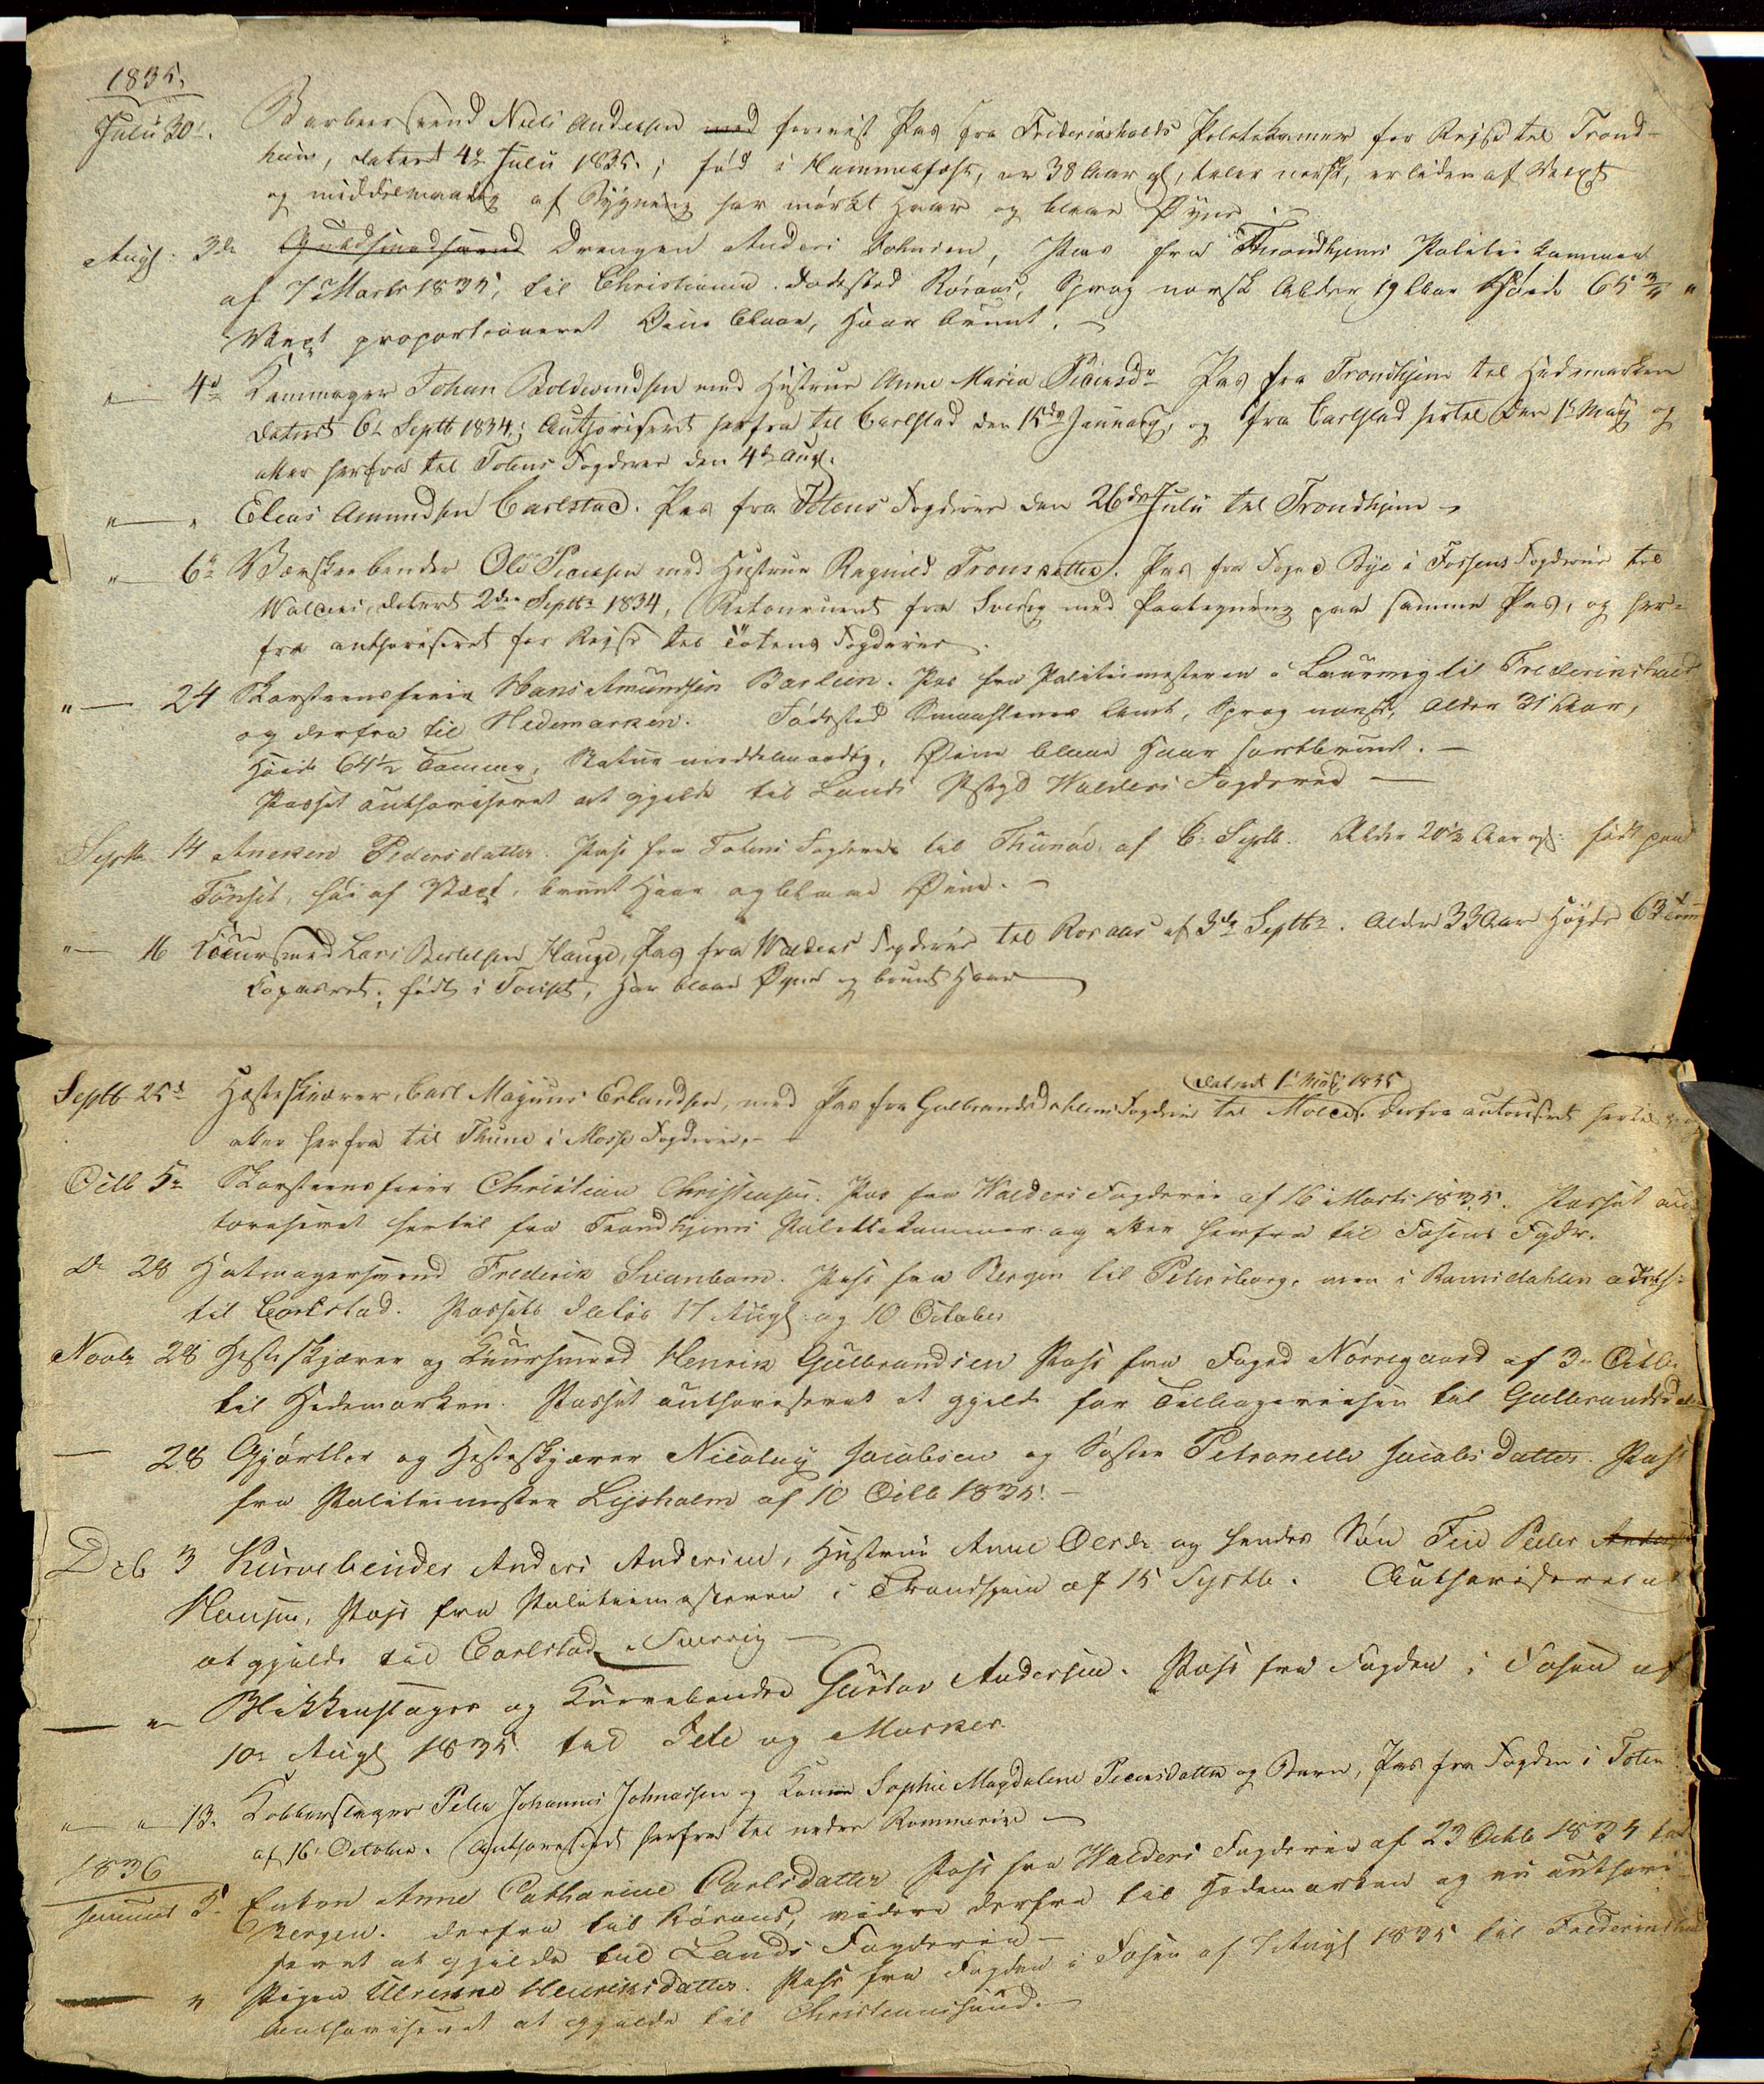 1835.
Julii 30'. Barbeersvend Niels Andersen med foreviist Pas fra Frederikshalds Politikamer for Rejse til Trond-
hiem, dateret 4de Julii 1835.; fød i Hammerfæst, er 38 Aar gl, taler norsk, er liden af Wæxt
og middelmaadig af Bygning har mørkt Haar og blaae Øyne
Augt. 3de Guldsmedsvend Drengen Anders Johnsen, Pas fra Throndhjems Politiekammer
af 7 Marts 1835, til Christiania. Fødested Röraas, Sprog norsk Alder 19 Aar Høide 65 3/4 "
Wæxt proportioneret Öine blaae, Haar brunt. -
" — 4de Kammager Johan Boldevindsen med Hustrue Anne Maria Pedersdr Pas fra Trondhjem til Hedemarken
dateret 6te Septb 1834.; Authoriseret herfra til Carlstad den 15de Januarÿ, og fra Carlstad hertil den 1st Maÿ og
atter herfra til Totens Fogderie den 4de Augt.
" — " Elias Amundsen Carlstad. Pas fra Totens Fogderie den 26de Julii til Trondhjem -
" — 6te Børstenbinder Ole Pedersen med Hustrue Ragnild Tronsdatter. Pas fra Foged Bye i Fossens Fogderie til
Walders, dateret 2den Septbr 1834, Retourneret fra Sverig med Paategning paa samme Pas, og her-
fra authoriseret for Rejse til Totens Fogderie.
" — 24 Skorsteensfeier Hans Amundsen Barlien. Pas fra Politiemesteren i Laurvig til Frederikshald
og derfra til Hedemarken. Fødested Smaalenes Amt, Sprog norsk, Alder 31 Aar,
Høide 64 1/2 Tomme, Statur middelmaadig, Øine blaae Haar sortbrunt. —
Passet authoriseret at gjelde til Lands Pstgd Walders Fogderie —
Septbr 14 Aneken Pedersdatter. Pass fra Totens Fogderie til Thunøe af 6. Septb. Alder 20 1/2 Aar gl: født paa
Tönset, høi af Væxt, brunt Haar og blaae Øine. -
" — 16 Lars Bertelsen Hauge, Pas fra Walders Fogderie til Roraas af 3de Septbr. Alder 33 Aar Høyde 63 Tomme
Kopparret, født i Tønset, har blaae Øyne og brunt Haar
Septb 25de Hesteskiærer Carl Magnus Erlandsen, med Pas fra Gulbrandsdahlens Fogderie (dateret 1st Maÿ 1835) til Molde. derfra autoriseret hertil og
atter herfra til Thune i Mosse Fogderie. -
Octb 5te Skorsteensfeier Christian Christensen. Pas fra Walders Fogderie af 16 Marts 1835. Passet au-
toriseret hertil fra Trondhjems Politiekammer og atter herfra til Fosens Fgdr.
Do 28 Hatmagersvend Frederik Svanbom. Pass fra Bergen til Petersborg, men i Romsdahlen
til Carlstad. Passets 17 Augt: og 10 October
Novbr 28 Hesteskjærer og Kuursmed Henrik Gulbrandsen Pass fra Foged Nörregaard af 3de Octbr
til Hedemarken. Passet authoriseret at gjelde for Tilbagereisen til Gulbrandsdalen
— 28 Gjørtler og Hesteskjærer Nicolay Jacobsen og Søster Petronelle Jacobsdatter. Pass
fra Politiemester Lysholm af 10 Octb 1835. -
Dcb 3 Kurvebinder Anders Andersen, Hustrue Anne Olsdr og hendes Søn Peder
Hansen, Pass fra Politiemesteren i Trondhjem af 15 Septb. Authoriseret
at gjelde til Carlstad i Sverrig —
— " Blikkenslager og Kurvebinder Gustav Andersen. Pass fra Fogden i Fosen af
10de Augt 1835 til Idde og Marker.
" — " 13. Kobberslager Peder Johannes Johnsen og Kone Sophie Magdalene Pedersdatter og Barn, Pas fra Fogden i Toten
af 16. October. Authoriseret herfra til nedre Rommerige —
1836
Januar 5. Enken Anne Catharine Carlsdatter Pass fra Walders Fogderie af 23 Octb 1835 til
Bergen. derfra til Röraas, videre derfra til Hedemarken og nu authori-
seret at gjelde til Lands Fogderie -
— " Pigen Ulrikke Henriksdatter. Pass fra Fogden i Fosen af 7 Augt 1835 til Frederikshald
authoriseret at gjelde til Christianssund. -